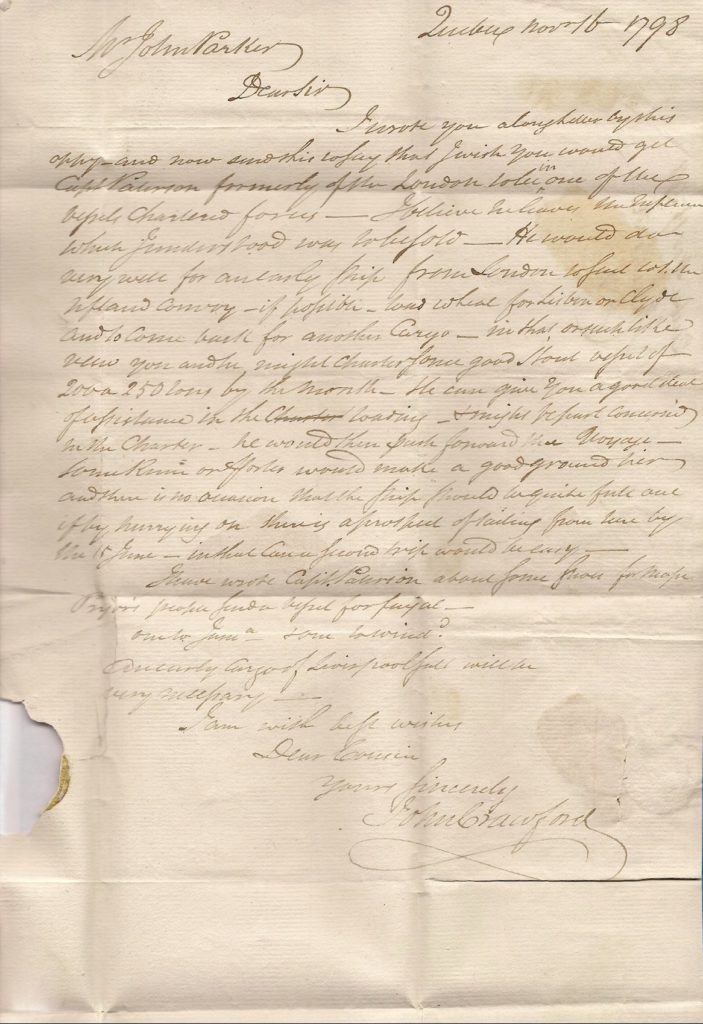 Quebec Novr 16 1798
Mr John Parker
Dear Sir
I wrote you a long letter by this
oppy - and now send this to say that I wish you would get
Capt. Paterson formerly of the London to be in one of the
vessels Chartered for us - I believe he leaves the
which I understood was to be sold - He would do
very well for an early ship from London to sail with the
convoy - if possible - load wheat for Lisbon or Clyde
and to come back for another Cargo - in that or such like
view you and he might Charter some good Stout vessel of
200 a 250 tons by the month - He can give you a good deal
of assistance in the Charter loading - & might be part concerned
in the Charter - he would then push forward the Voyage -
some or would make a good ground tier
and there is no occasion that the ship should be quite full out
if by hurrying on there is a prospect of sailing from here by
the 15 June - in that Case a second trip would be easy -
I have wrote Capt. Paterson about some for
people send a vessel for -
one to Jama - some to windd.
An early Cargo of Liverpool salt will be
very necessary -
I am with best wishes
Dear Cousin
Yours Sincerely
John Crawford